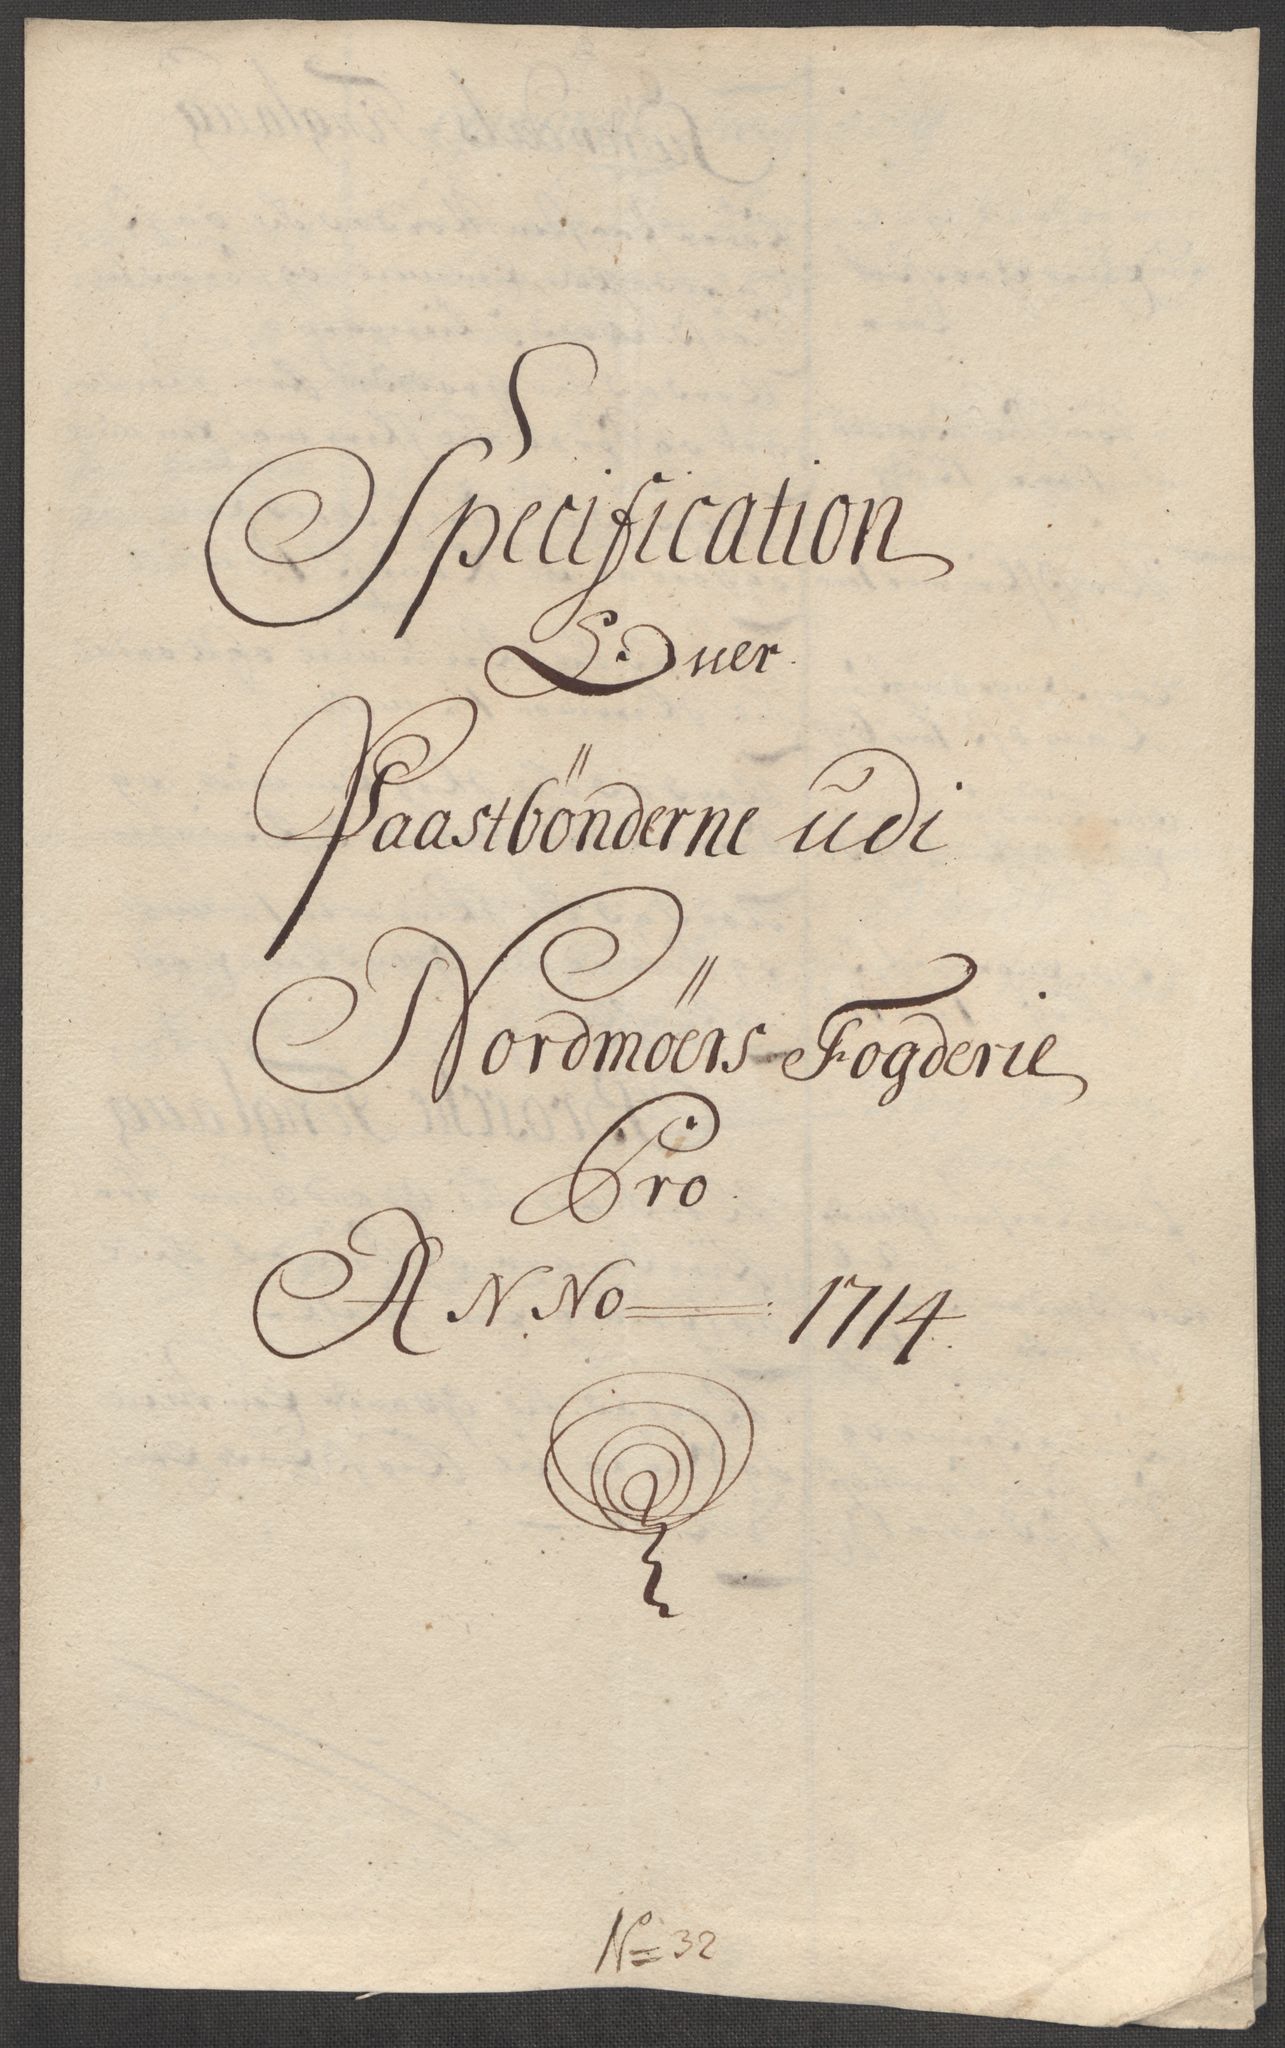 Specification
Over
Paastbönderne udi
Nordmöers Fogderie
Pro
ANNo 1714
No 32